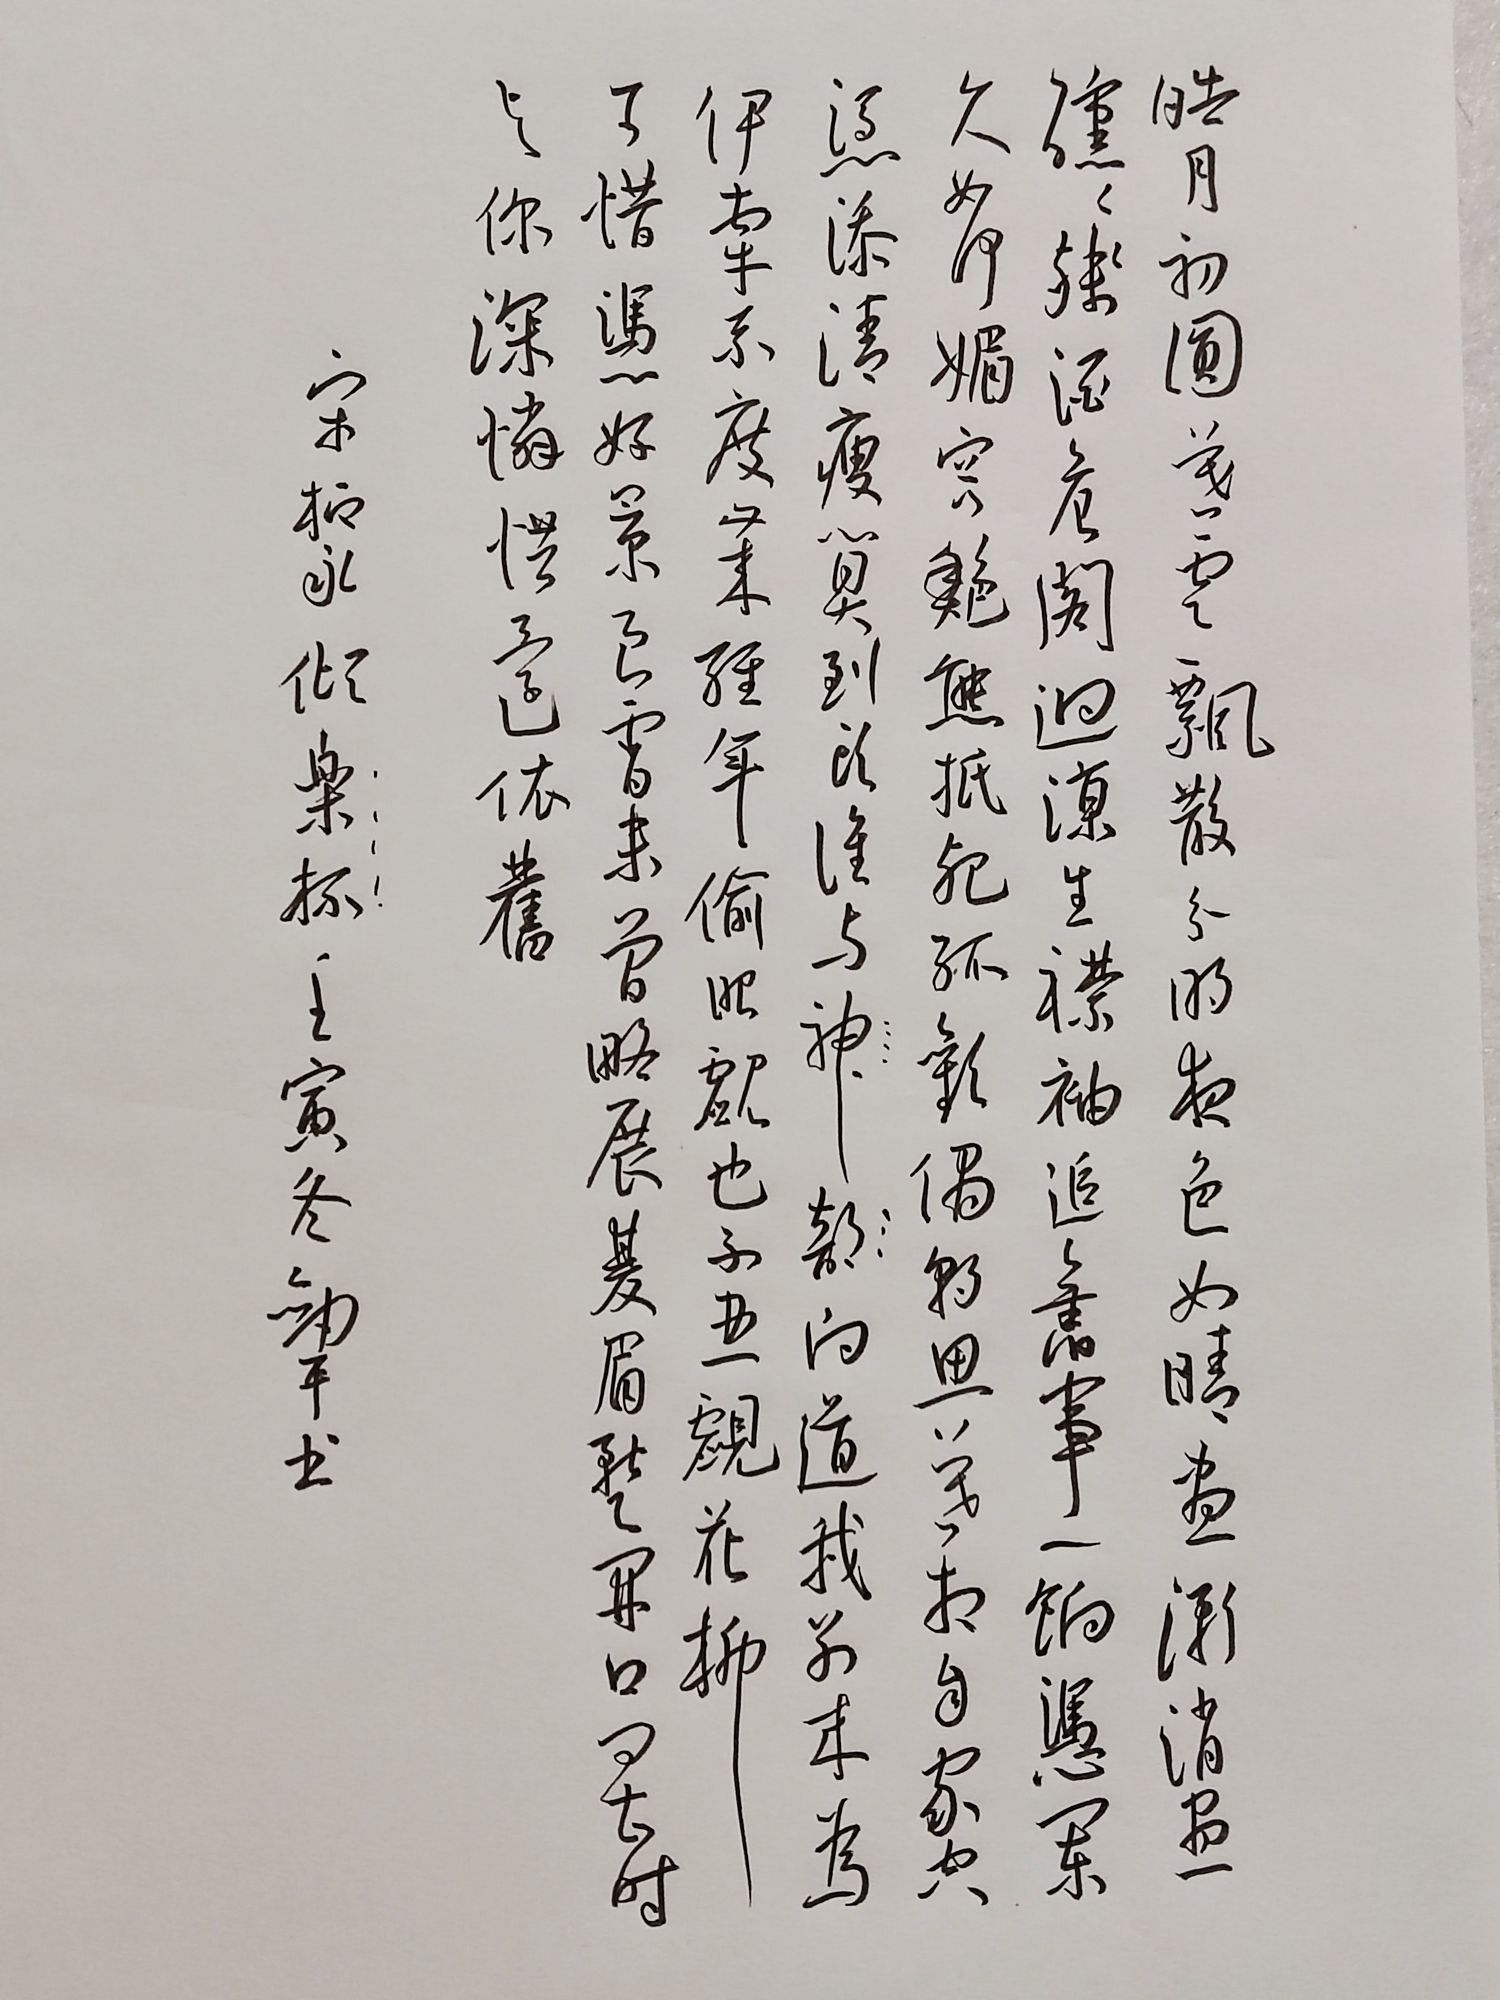 皓月初圓暮雲飄散分明夜色如晴晝漸消盡
醺々殘酒危閣迥涼生襟袖追舊事一餉憑闌
久如何媚容艷態抵死孤歡偶朝思暮想自家空
恁添清瘦算到頭誰与向道我別來為
伊牽系度歲經年偷眼覷也不忍覷花柳
可惜恁好景良宵未曾略展雙眉暫開口問甚時
与你深憐惜還依舊
宋柳永傾樂杯壬寅冬平书